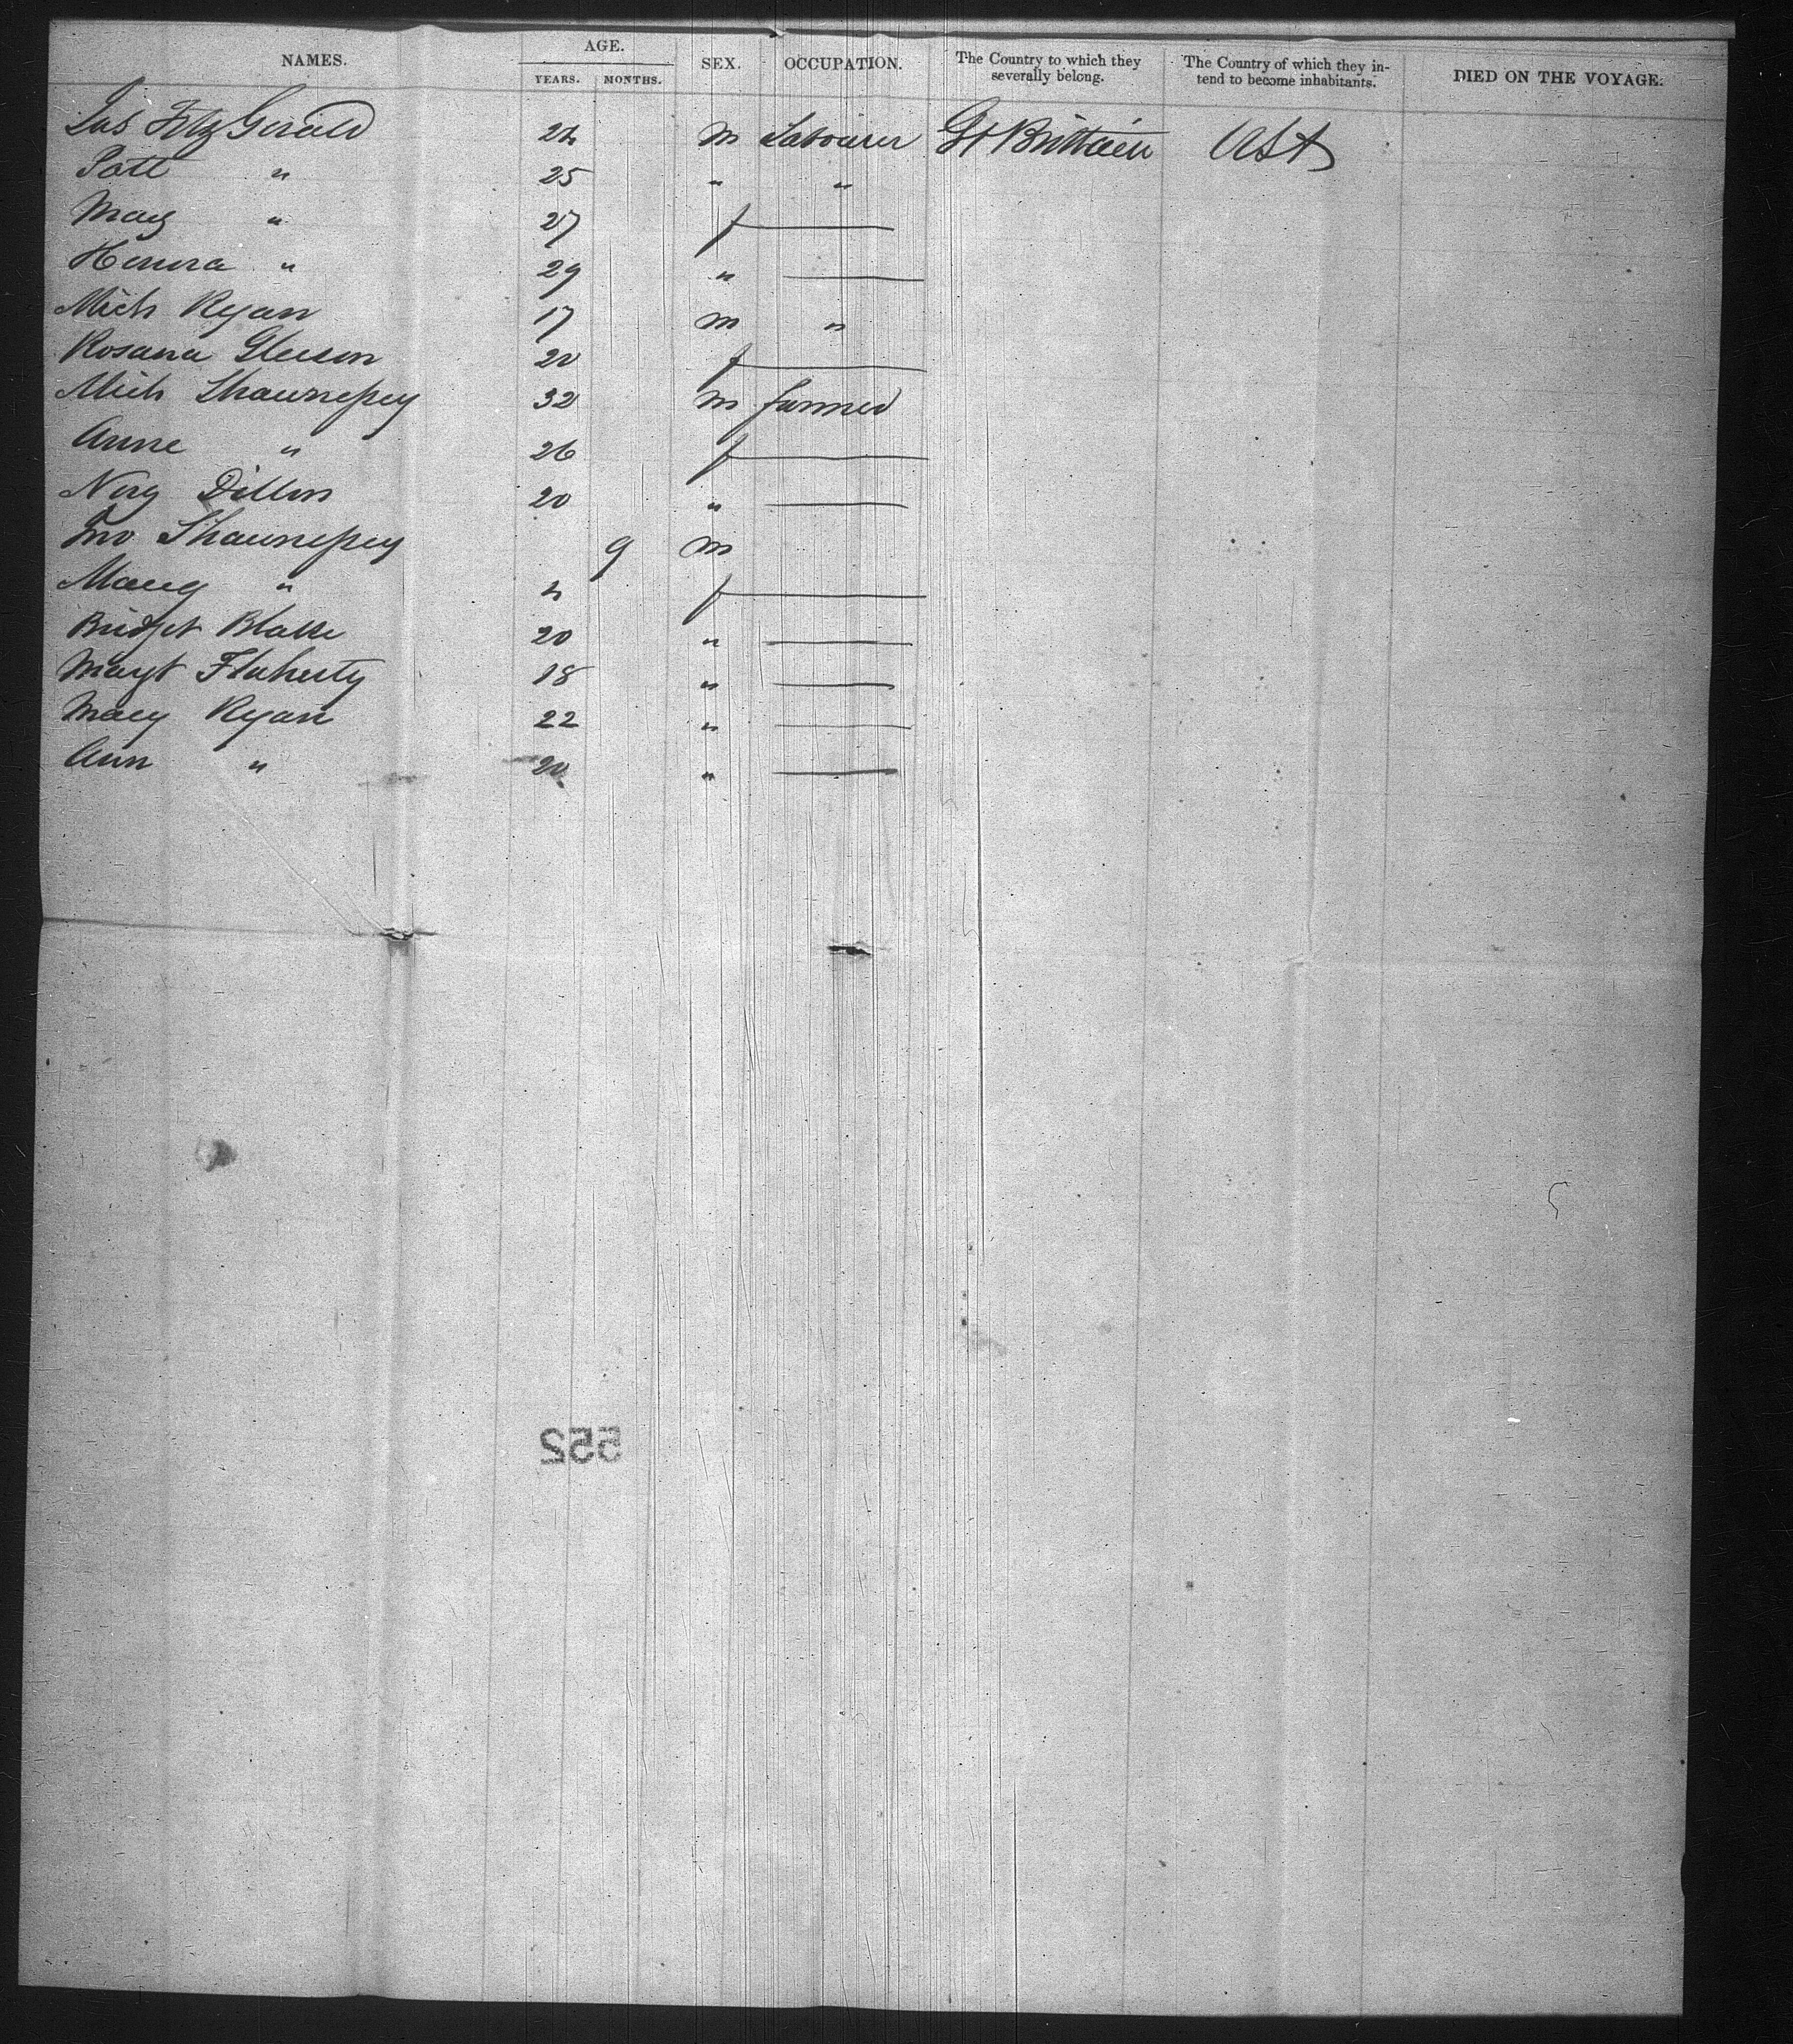 NAMES. AGE. YEARS. MONTHS. SEX. OCCUPATION. The Country to which they severally belong. The Country of which they intend to become inhabitants. DIED ON THE VOYAGE.
Jas FitzGerald 24 m Labourer Gt Brittain USA
Patt " 25 " "
Mary " 27 f
Honora " 29 "
Mich Ryan 17 m "
Rosana Gleeson 20 f
Mich Shaunessy 32 m farmer
Anne " 26 f
Nory Dillon 20 "
Jno Shaunessy 9 m
Mary " 4 f
Bridget Blake 20 "
Margt Flaherty 18 "
Mary Ryan 22 "
Ann " 20 "
552